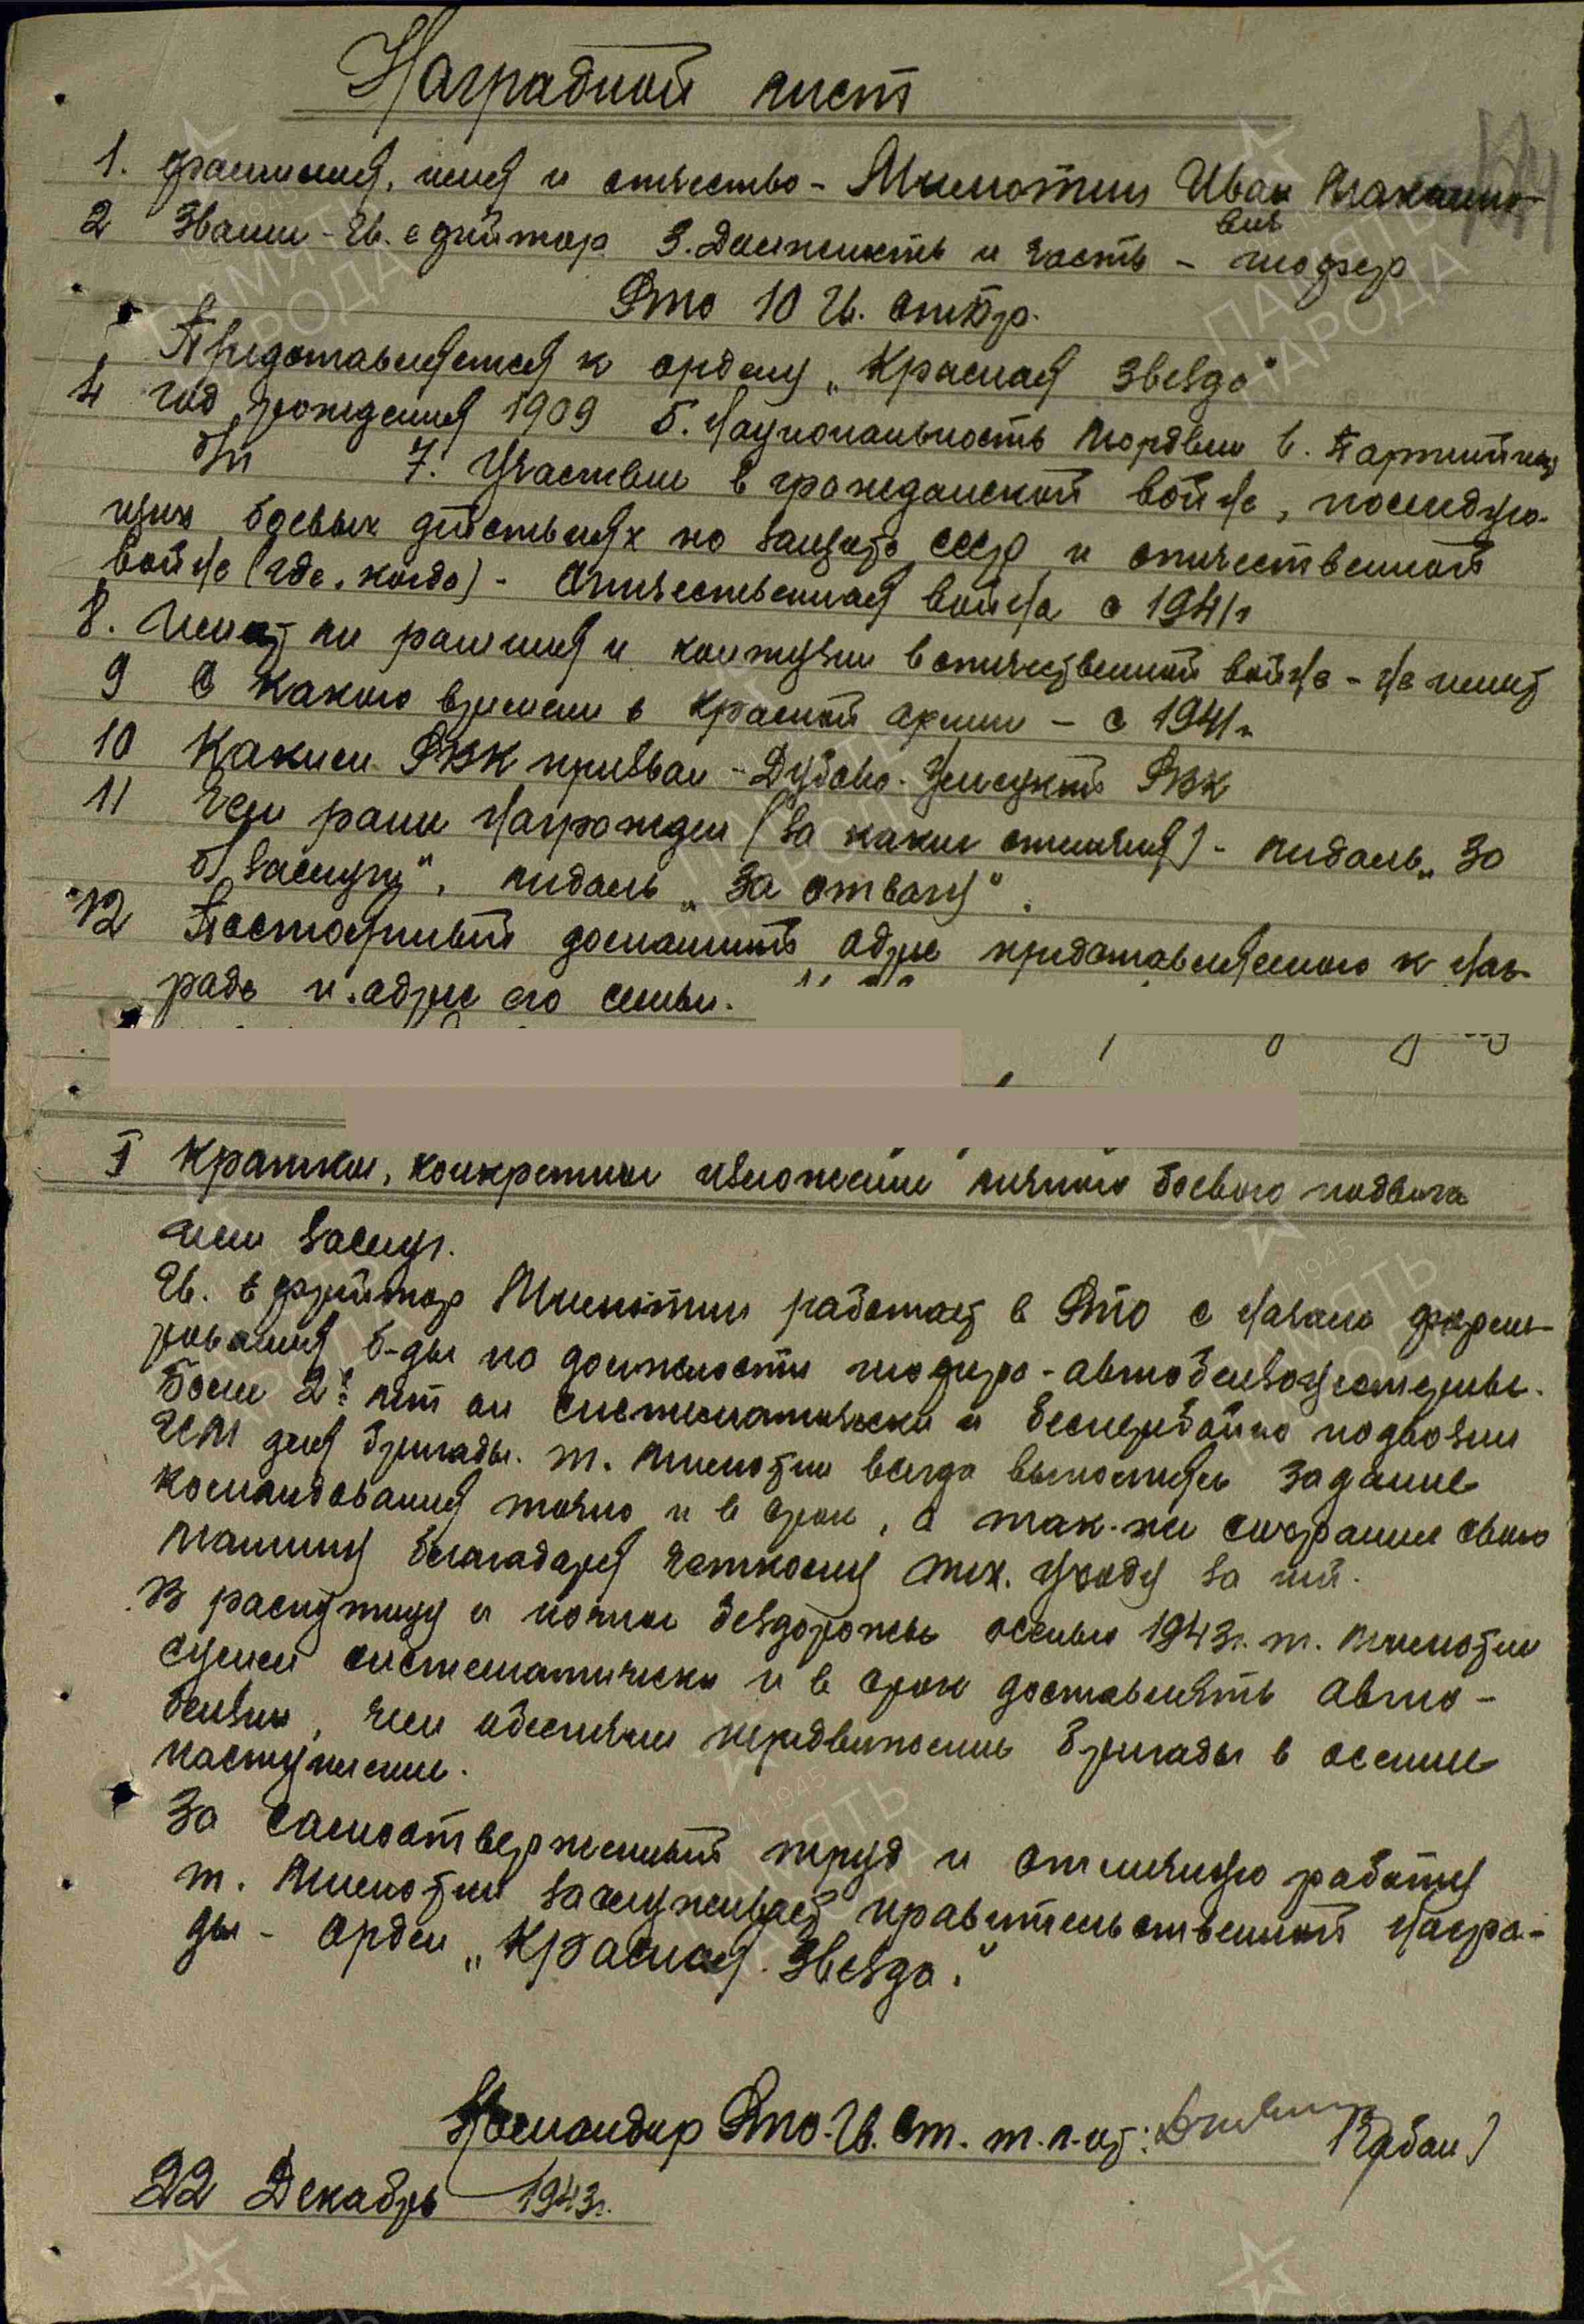 Наградной лист
1. Фамилия, имя и отчество - Милотин Иван Максимо-
вич
2 Звание - Гв. ефрейтор 3. Должность и часть - шофер
Рто 10 Гв. отбр.
Представляется к ордену „Красная звезда"
4 год рождения 1909 5. Национальность мордвин 6. Партийность
б/п 7. Участвие в гражданской войне, последую-
щих боевых действиях по защите СССР и отечественной
войне (где, когда) - Отечественная война с 1941г
8. Имеет ли ранения и контузии в отечественной войне - не имеет
9 С какого времени в Красной армии - с 1941г.
10 Каким РВК призван - Дубово-Умецкий РВК
11 Чем ранее награжден (за какие отличия) - медаль „За
б/заслуги", медаль „За отвагу".
12 Постоянный домашний адрес представляемого к наг-
раде и адрес его семьи.
I Краткое, конкретное изложение личного боевого подвига
или заслуг.
Гв. ефрейтор Милотин работает в Рто с начала форми-
рования б-ды на должности шофера-автобензоцистерны.
Более 2х лет он систематически и бесперебойно подвозил
ГСМ для бригады. т. Милотин всегда выполнял задание
командования точно и в срок, а так-же сохранил свою
машину благадаря четкому тех. уходу за ней.
В распутицу и полное бездорожье осенью 1943г. т. Милотин
сумел систематически и в срок доставлять авто-
бензин, чем обеспечил передвижение бригады в осеннее
наступление.
За самоотверженный труд и отличную работу
т. Милотин заслуживает правительственной награ-
ды - орден „Красная Звезда."
Командир Рто-Гв. Ст. т. л-нт: (Кабан)
22 Декабрь 1943г.
ПАМЯТЬ
НАРОДА